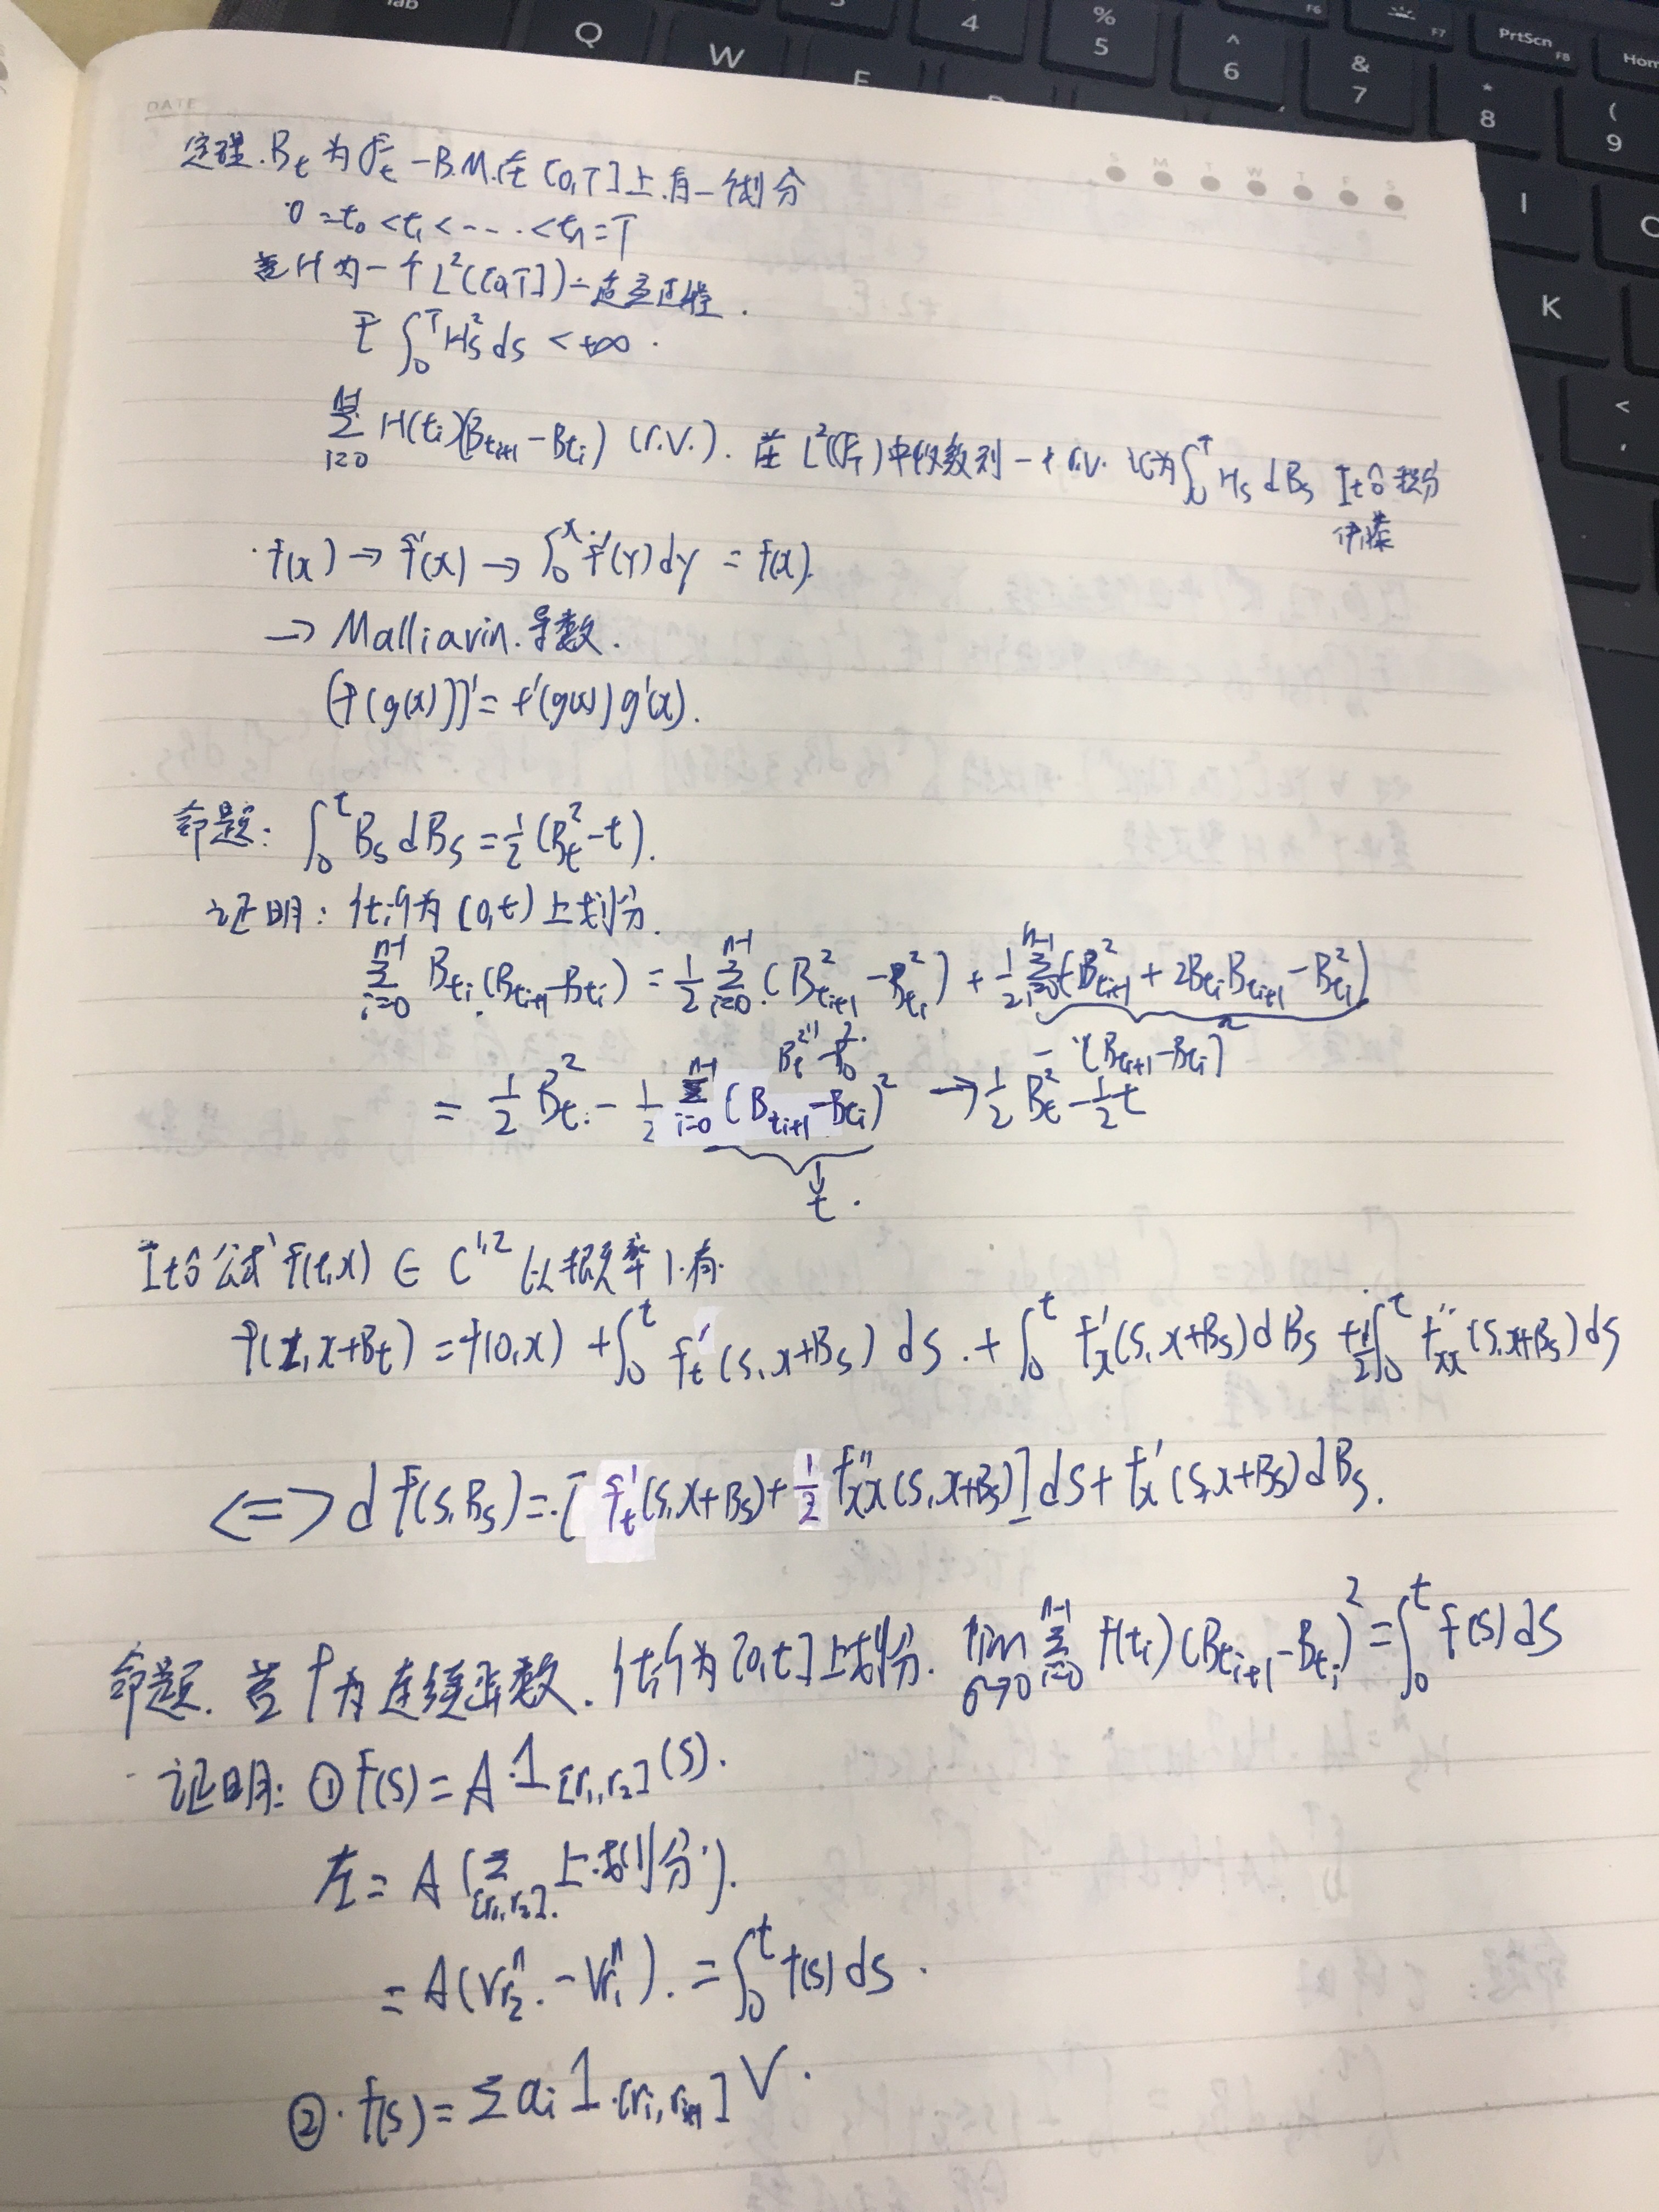 Tab
Q
W
E
4
% 5
^ 6
& 7
* 8
( 9
F6
F7
PrtScn F8
Hom
I
K
<
,
DATE
S M T W T F S
定理. B_t 为 F_t -B.M. 在 [0,T] 上有一划分
0 = t_0 < t_1 < ---- < t_n = T
若 H 为一个 L²([0,T]) - 适应过程.
E ∫_0^T H_s² ds < +∞.
∑_{i=0}^{n-1} H(t_i)(B_{t_{i+1}} - B_{t_i}) (r.v.). 在 L²(F_T) 中收敛到一个 r.v. 记为 ∫_0^T H_s dB_s Itô 积分
伊藤
f(x) → f'(x) → ∫_0^x f'(y) dy = f(x).
→ Malliavin. 导数.
(f(g(x)))' = f'(g(x)) g'(x).
命题: ∫_0^t B_s dB_s = 1/2 (B_t² - t).
证明: {t_i} 为 [0,t) 上划分.
∑_{i=0}^{n-1} B_{t_i} (B_{t_{i+1}} - B_{t_i}) = 1/2 ∑_{i=0}^{n-1} (B_{t_{i+1}}² - B_{t_i}²) + 1/2 ∑_{i=0}^{n-1} (-B_{t_{i+1}}² + 2B_{t_i} B_{t_{i+1}} - B_{t_i}²)
B_t² - B_0² - (B_{t_{i+1}} - B_{t_i})²
= 1/2 B_t² - 1/2 ∑_{i=0}^{n-1} (B_{t_{i+1}} - B_{t_i})² → 1/2 B_t² - 1/2 t
↓
t.
Itô 公式 f(t,x) ∈ C^{1,2} 以概率 1 有
f(t, x+B_t) = f(0,x) + ∫_0^t f'_t (s, x+B_s) ds + ∫_0^t f'_x (s, x+B_s) dB_s + 1/2 ∫_0^t f''_{xx} (s, x+B_s) ds
<=> d f(s, B_s) = [ f'_t (s, x+B_s) + 1/2 f''_{xx} (s, x+B_s) ] ds + f'_x (s, x+B_s) dB_s.
命题. 若 f 为连续函数. {t_i} 为 [0,t] 上划分. lim_{σ→0} ∑_{i=0}^{n-1} f(t_i) (B_{t_{i+1}} - B_{t_i})² = ∫_0^t f(s) ds
证明: ① f(s) = A·1_{[r_1, r_2]} (s).
左 = A (∑_{[r_1, r_2]} 上划分).
= A (V_{r_2}^n - V_{r_1}^n). = ∫_0^t f(s) ds.
②. f(s) = ∑ a_i 1_{[r_i, r_{i+1}]} √.